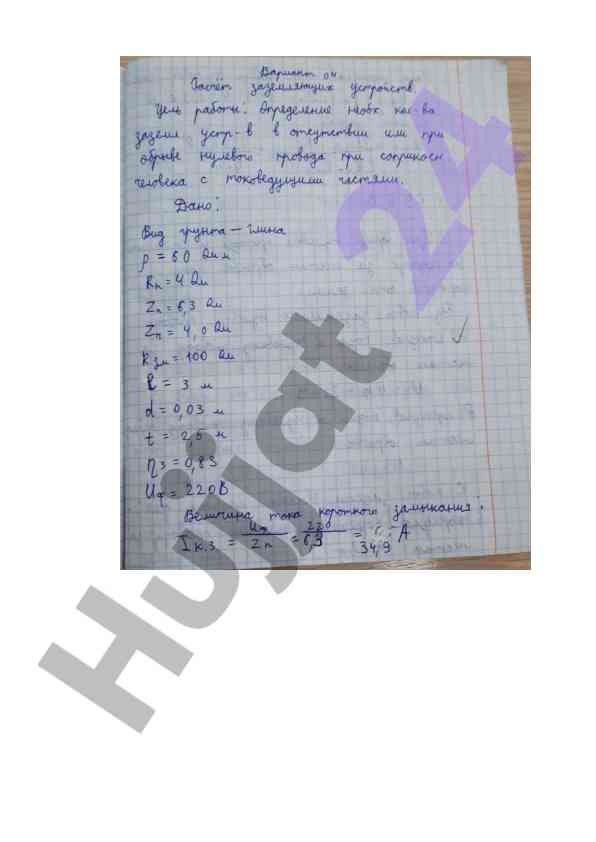 Вариант 04.
Расчёт заземляющих устройств
Цель работы: Определение необх. кол-ва
заземл. устр-в в отсутствии или при
обрыве нулевого провода при соприкосн
человека с токоведущими частями.
Дано:
Вид грунта – глина
ρ = 60 Ом м
Rн = 4 Ом
Zп = 6,3 Ом
Zп = 4,0 Ом
Rзм = 100 Ом
ℓ = 3 м
d = 0,03 м
t = 2,5 м
ηз = 0,83
Uф = 220 В
Величина тока короткого замыкания:
Iк.з. = Uф / Zп = 220 / 6,3 = 34,9 А
Hujjat 24